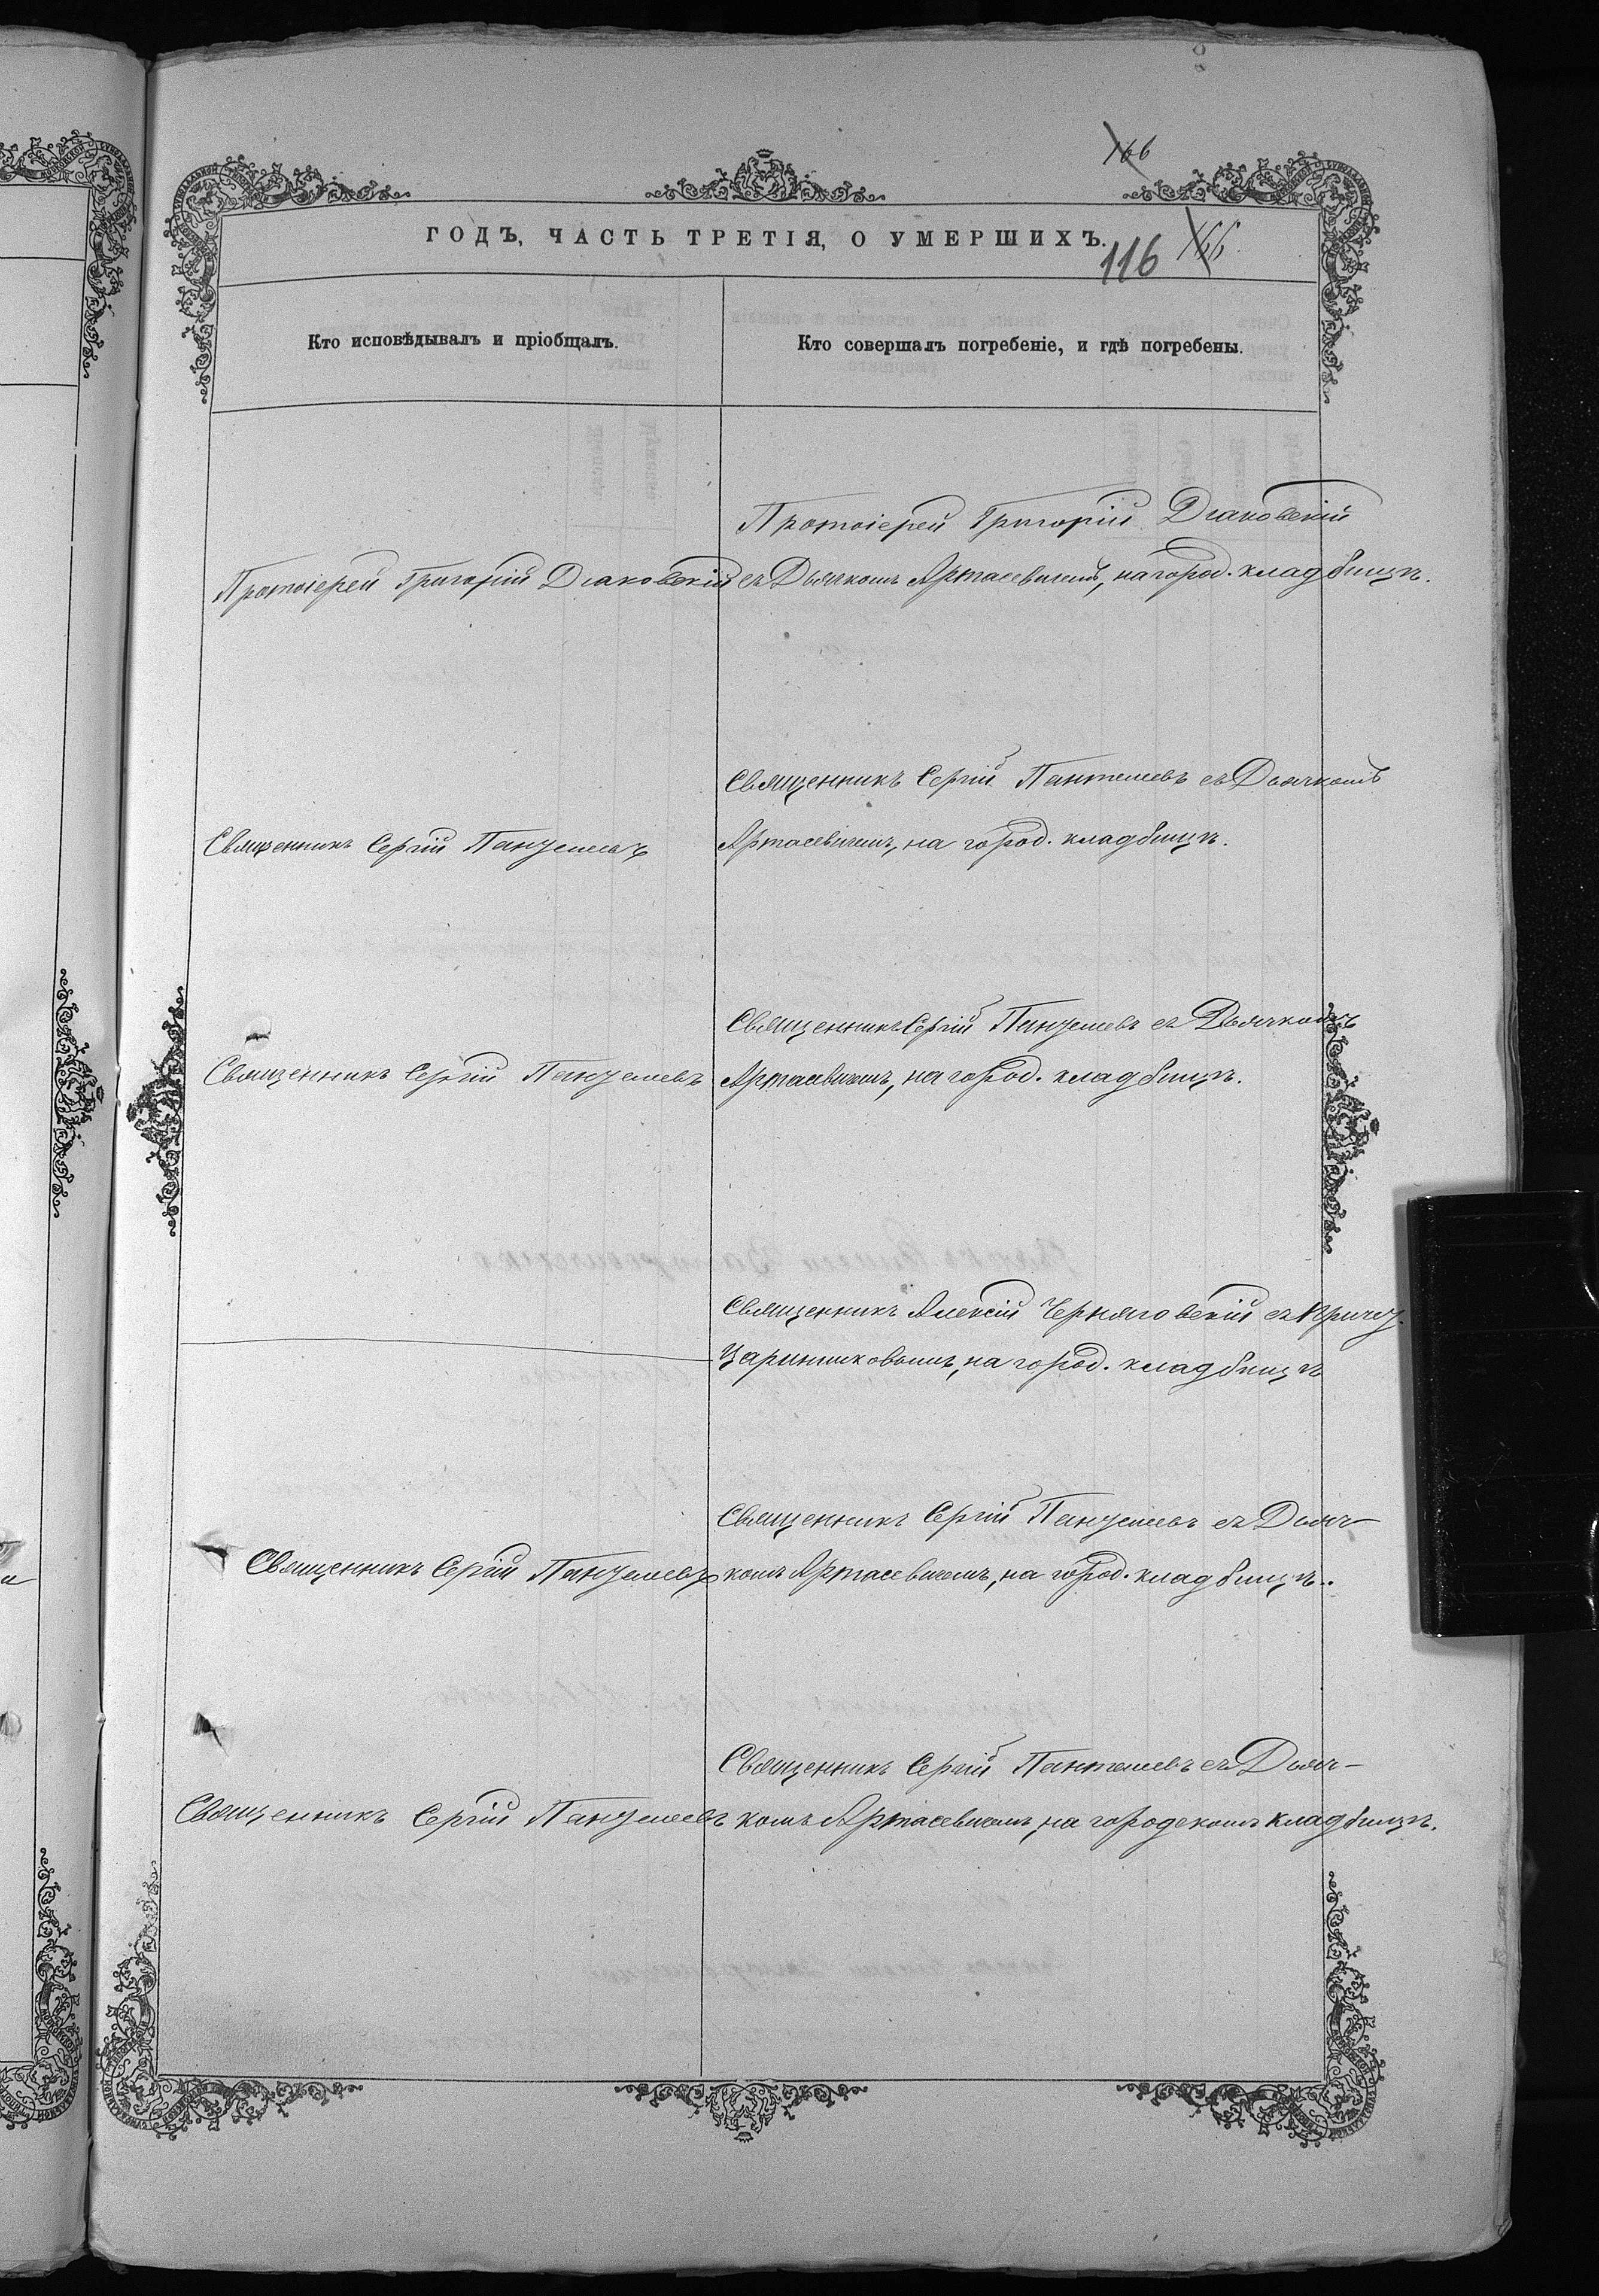 166
ГОДЪ, ЧАСТЬ ТРЕТІЯ, О УМЕРШИХЪ.
116 166
Кто исповѣдывалъ и пріобщалъ.
Кто совершалъ погребеніе, и гдѣ погребены.
Протоіерей Григорій Діаковскій
Протоіерей Григорій Діаковскій
съ Дьячкомъ Артасевичемъ, на город. кладбищѣ.
Священникъ Сергій Пантелеевъ
Священникъ Сергій Пантелеевъ съ Дьячкомъ
Артасевичемъ, на город. кладбищѣ.
Священникъ Сергій Пантелеевъ
Священникъ Сергій Пантелеевъ съ Дьячкомъ
Артасевичемъ, на город. кладбищѣ.
Священникъ Алексій Черняговскій съ Причет.
на город. кладбищѣ
Священникъ Сергій Пантелеевъ
Священникъ Сергій Пантелеевъ съ Дьяч-
комъ Артасевичемъ, на город. кладбищѣ.
Священникъ Сергій Пантелеевъ
Священникъ Сергій Пантелеевъ съ Дьяч-
комъ Артасевичемъ, на городскомъ кладбищѣ.